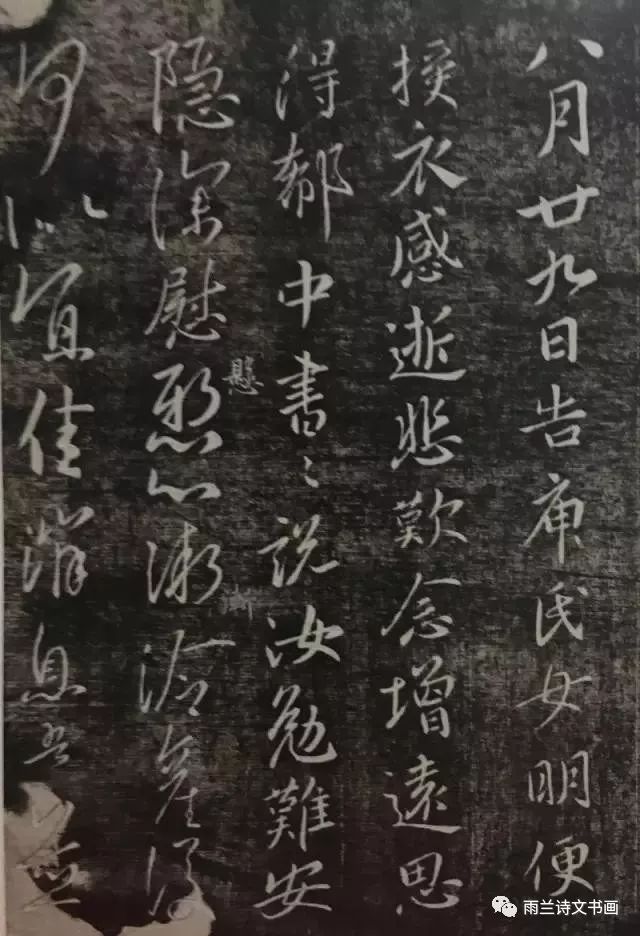 八月廿九日告庾氏女明便
授衣感逝悲歎念增遠思
得郗中書〻說汝勉難安
隱深慰懸心漸冷產後
懸
漸
何似宜佳消息吾並
雨兰诗文书画